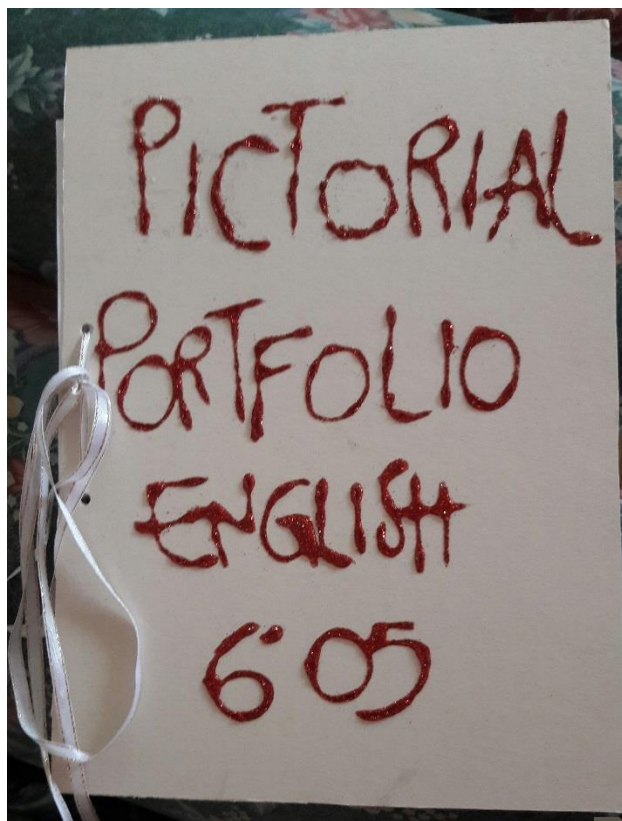 PICTORIAL
PORTFOLIO
ENGLISH
6°05